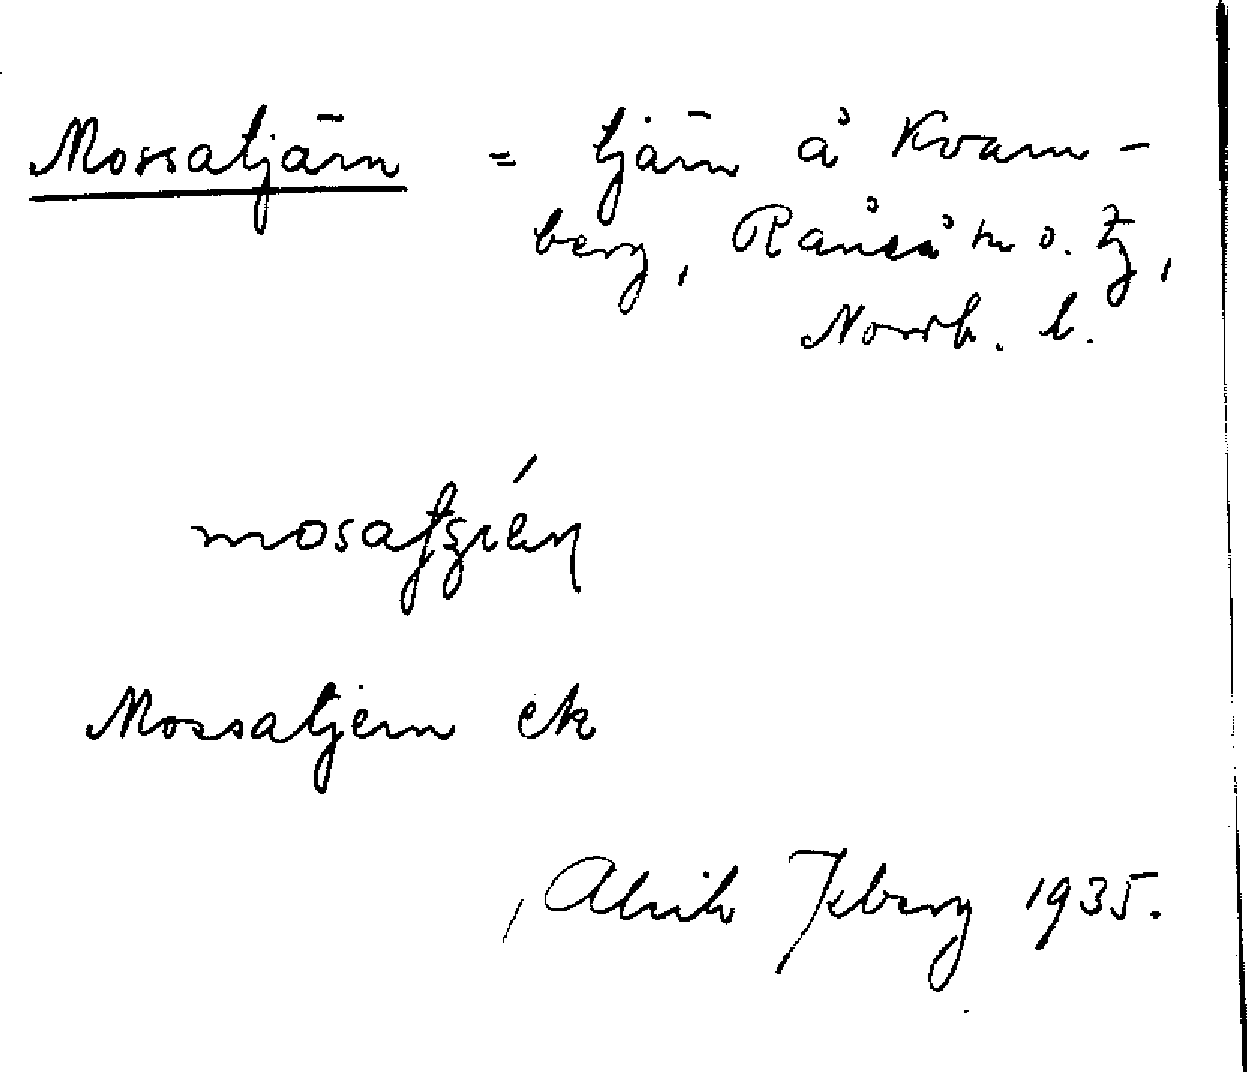 Mossatjärn = tjärn å Kvarn-
berg, Råneå sn o. tg,
Norrb. l.
Mossatjern ek
Alrik Isberg 1935.